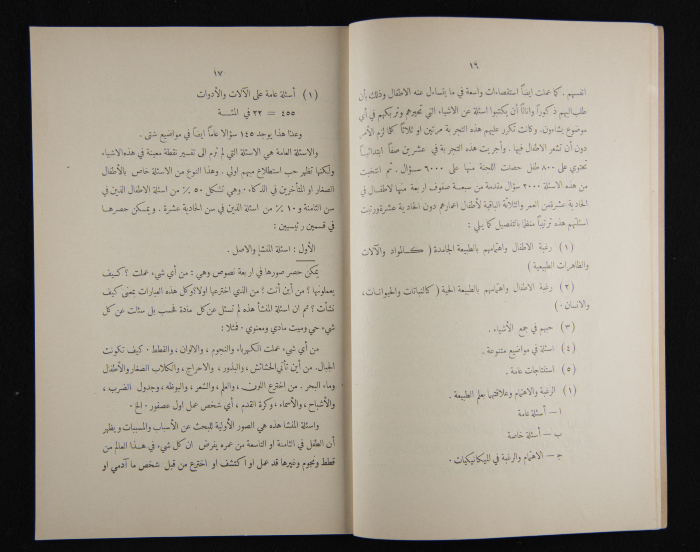 ١٦
انفسهم . كما عملت ايضاً استقصاءات واسعة في ما يتساءل عنه الاطفال وذلك بأن
طلب اليهم ذكوراً واناثاً أن يكتبوا اسئلة عن الاشياء التي تحيرهم وتربكهم في أي
موضوع يشاءون . وكانت تكرر عليهم هذه التجربة مرتين او ثلاثاً كما لزم الأمر
دون أن تشعر الاطفال فيها . وأجريت هذه التجربة في عشرين صفاً ابتدائياً
تحتوي على ٨٠٠ طفل حصلت اللجنة منها على ٦٠٠٠ سؤال . ثم انتخبت
من هذه الاسئلة ٢٠٠٠ سؤال مقدمة من سبعة صفوف اربعة منها لاطفال في
الحادية عشرة من العمر والثلاثة الباقية لأطفال اعمارهم دون الحادية عشرة ورتبت
اسئلتهم هذه ترتيباً منظماً بالتفصيل كما يلي :
(١) رغبة الاطفال واهتمامهم بالطبيعة الجامدة ( كالمواد والآلات
والظاهرات الطبيعية )
(٢) رغبة الاطفال واهتمامهم بالطبيعة الحية ( كالنباتات والحيوانات ،
والانسان . )
(٣) حبهم في جمع الأشياء .
(٤) اسئلة في مواضيع متنوعة .
(٥) استنتاجات عامة .
(١) الرغبة والاهتمام وعلاقتهما بعلم الطبيعة .
ا — أسئلة عامة
ب — أسئلة خاصة
ج — الاهتمام والرغبة في الميكانيكيات .
١٧
(١) أسئلة عامة على الآلات والأدوات
٤٥٥ = ٢٢ في المئة
وعدا هذا يوجد ١٤٥ سؤالا عاماً ايضاً في مواضيع شتى .
والاسئلة العامة هي الاسئلة التي لم تُرم الى تفسير نقطة معينة في هذه الاشياء
ولكنها تظهر حب استطلاع مبهم اولي . وهذا النوع من الاسئلة خاص بالأطفال
الصغار او المتأخرين في الذكاء . وهي تشكل ٥٠ ٪ من اسئلة الاطفال الذين في
سن الثامنة و ١٠ ٪ من اسئلة الذين في سن الحادية عشرة . ويمكن حصرها
في قسمين رئيسيين :
الأول : اسئلة المنشإ والاصل .
يمكن حصر صورها في اربعة نصوص وهي : من أي شيء عملت ؟ كيف
يعملونها ؟ من أين أتت ؟ من الذي اخترعها اولا؟ وكل هذه العبارات بمعنى كيف
نشأت ؟ ثم ان اسئلة المنشأ هذه لم تسئل عن كل مادة فحسب بل سئلت عن كل
شيء حي وميت مادي ومعنوي . فمثلا :
من أي شيء عملت الكهرباء والنجوم ، والالوان ، والقطط . كيف تكونت
الجبال . من أين تأتي الحشائش ، والبذور ، والاحراج ، والكلاب الصغار والأطفال
وماء البحر . من اخترع اللون ، والعلم ، والشعر ، والبوظه ، وجدول الضرب ،
والأشباح ، والأسماء ، وكرة القدم ، أي شخص عمل اول عصفور . الخ .
واسئلة المنشا هذه هي الصور الأولية للبحث عن الأسباب والمسببات ويظهر
أن الطفل في الثامنة او التاسعة من عمره يفرض ان كل شيء في هذا العالم من
قطط ونجوم وغيرها قد عمل او اكتشف او اخترع من قبل شخص ما آدمي او